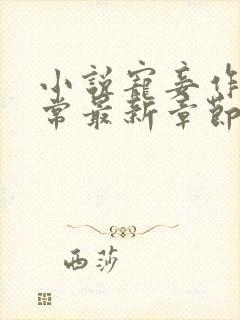 小說寵妾作
常最新章節
西莎